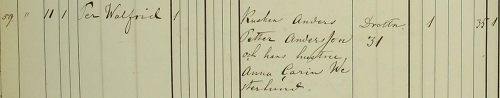 59 " 11 1 Per Walfrid 1 Kusken Anders Drottn. 1 35 1
Petter Andersson 31
och hans hustru
Anna Carin We
sterlund.